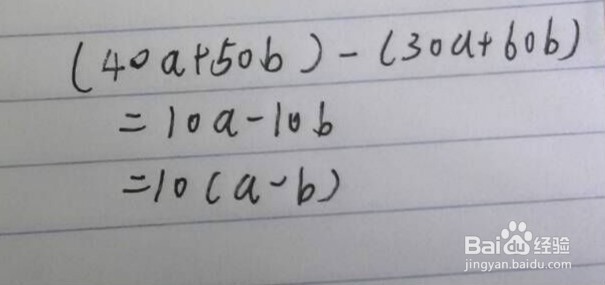 (40a+50b)-(30a+60b)
=10a-10b
=10(a-b)
Baidu经验
jingyan.baidu.com